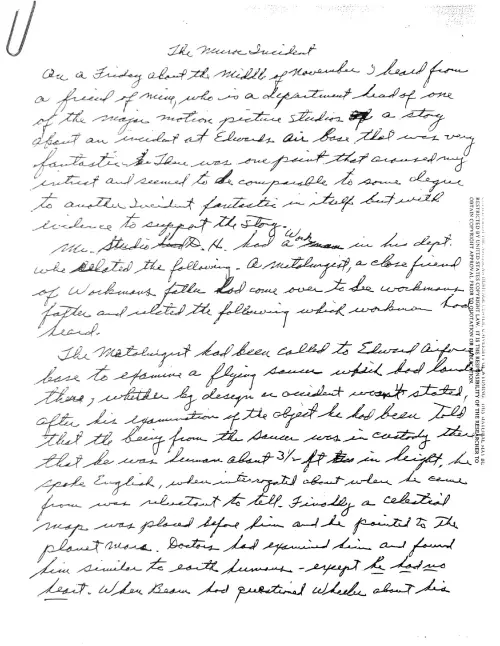 The Muroc Incident
On a Friday about the middle of November I heard from
a friend of mine, who is a department head of one
of the major motion picture studios of a story
about an incident at Edwards Air Base that was very
fantastic. There was one point that aroused my
intrest and seemed to be comparable to some degree
to another Incident fantastic in itself but with
evidence to support the story.
Mr. Studio H. had a Workman in his dept.
who related the following. A Metalurgist, a close friend
of Workmans father had come over to see workmans
father and related the following which workman had
heard.
The Metalurgist had been called to Edward Airfor
base to examine a flying saucer which had land
there, whether by design or accident wasn't stated,
after his examination of the object he had been told
that the being from the saucer was in custody there
that he was human about 3½ ft in height, he
spoke English, when interrogated about where he came
from was reluctant to tell. Finally a celestial
map was placed before him and he pointed to the
planet Mars. Doctors had examined him and found
him similar to earth humans - except he had no
heart. When Beam had questioned Wheeler about his
RESTRICTED BY UNITED STATES COPYRIGHT LAW. IT IS THE RESPONSIBILITY OF THE RESEARCHER TO
OBTAIN COPYRIGHT APPROVAL PRIOR TO QUOTATION OR REPLICATION.